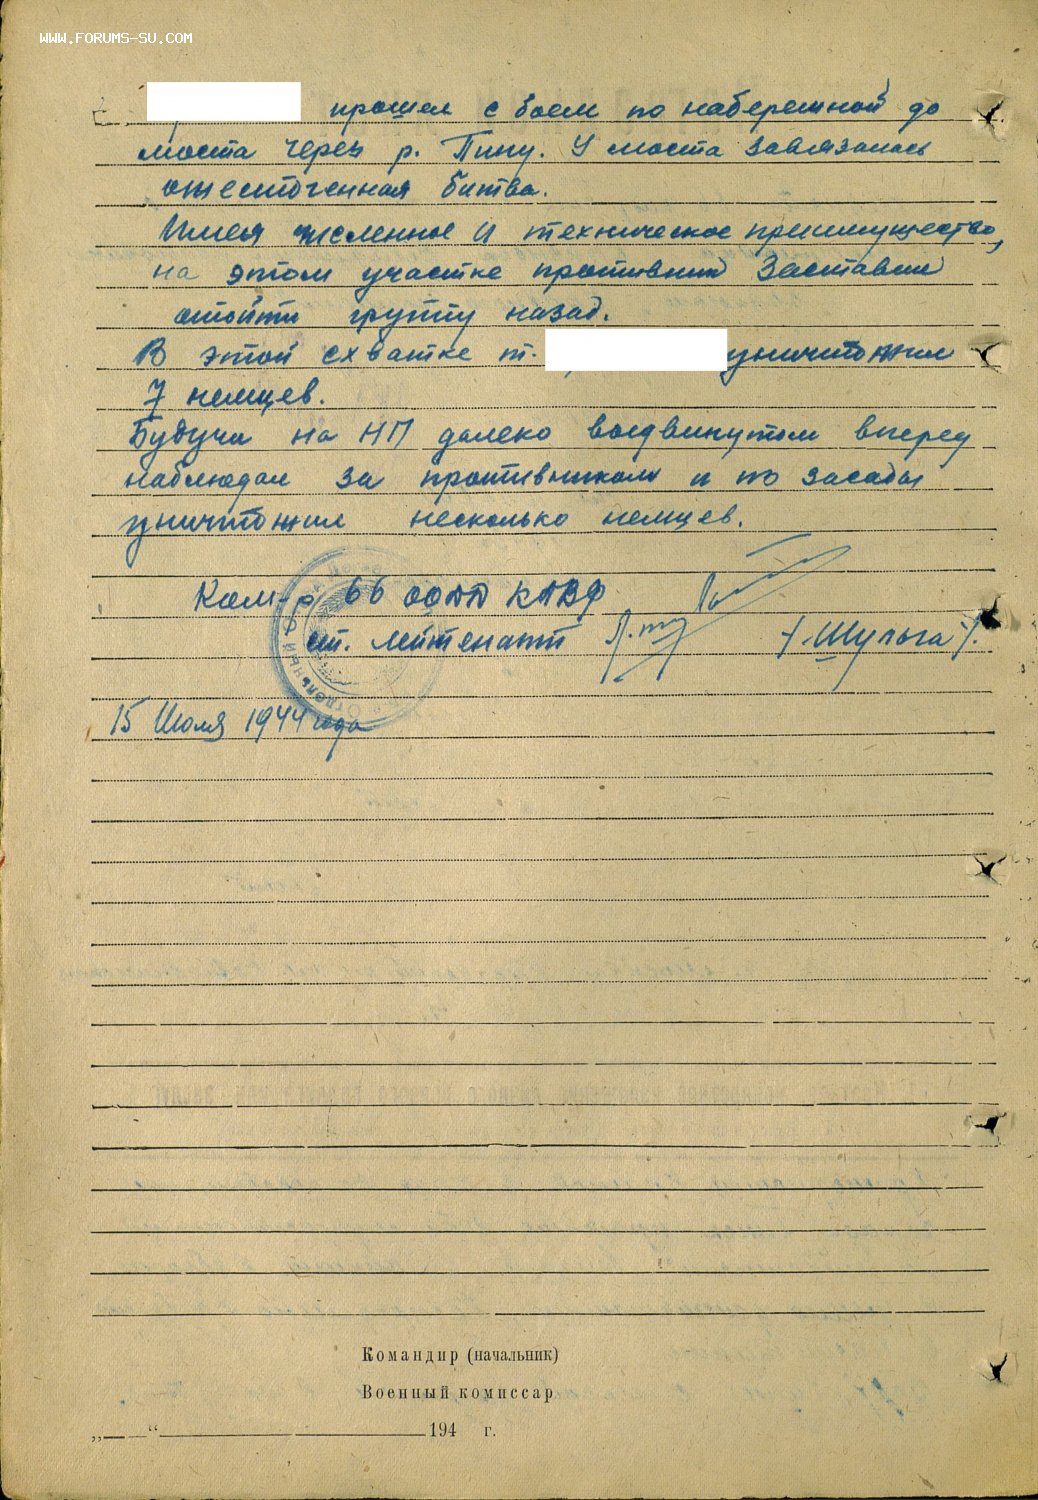 WWW.FORUMS-SU.COM
прошел с боем по набережной до
моста через р. Пину. У моста завязалась
ожесточенная битва.
Имея численное и техническое преимущество,
на этом участке противник заставил
отойти группу назад.
В этой схватке т. уничтожил
7 немцев.
Будучи на НП далеко выдвинутом вперед
наблюдал за противником и из засады
уничтожил несколько немцев.
Ком-р 66 КПВФ
ст. лейтенант /Шульга/.
15 Июля 1944 года
Командир (начальник)
Военный комиссар
„ “ 194 г.